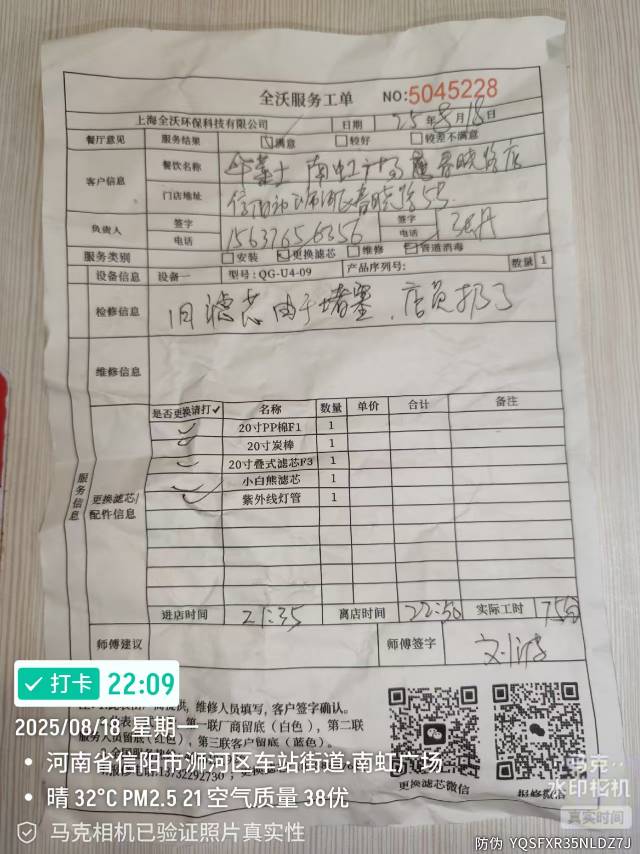 全沃服务工单 NO:5045228
上海全沃环保科技有限公司 日期 25年8月18日
餐厅意见 服务结果 满意 较好 较差不满意
客户信息 餐饮名称 华莱士 南虹广场 春晓路店
门店地址 信阳市浉河区春晓路55
负责人 签字 签字
电话 15637656356 电话
服务类别 安装 更换滤芯 维修 管道消毒
设备信息 设备一 型号:QG-U4-09 产品序列号: 数量 1
检修信息 旧滤芯由于堵塞,店员扔了
维修信息
服务信息
更换滤芯/配件信息
是否更换请打✓ 名称 数量 单价 合计 备注
20寸PP棉F1 1
20寸炭棒 1
20寸叠式滤芯F3 1
小白熊滤芯 1
紫外线灯管 1
进店时间 21:35 离店时间 22:50 实际工时 75分
师傅建议 师傅签字
维修人员填写,客户签字确认。
第一联厂商留底(白色),第二联
服务人员留底(红色),第三联客户留底(蓝色)。
更换滤芯微信 报修微信
打卡 22:09
2025/08/18 星期一
河南省信阳市浉河区车站街道·南虹广场
晴 32°C PM2.5 21 空气质量 38优
马克相机已验证照片真实性
马克
水印相机
真实时间
防伪 YQSFXR35NLDZ7J